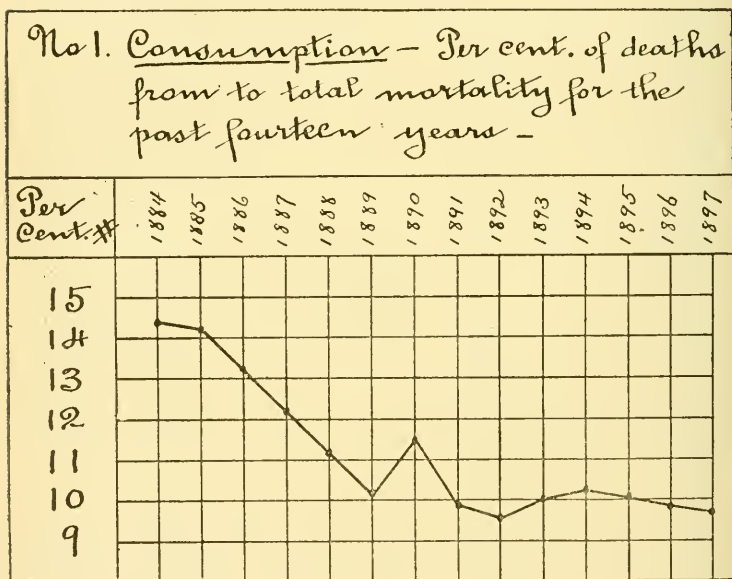 No 1. Consumption – Per cent. of deaths
from to total mortality for the
past fourteen years –
Per
Cent. #
1884 1885 1886 1887 1888 1889 1890 1891 1892 1893 1894 1895 1896 1897
15
14
13
12
11
10
9